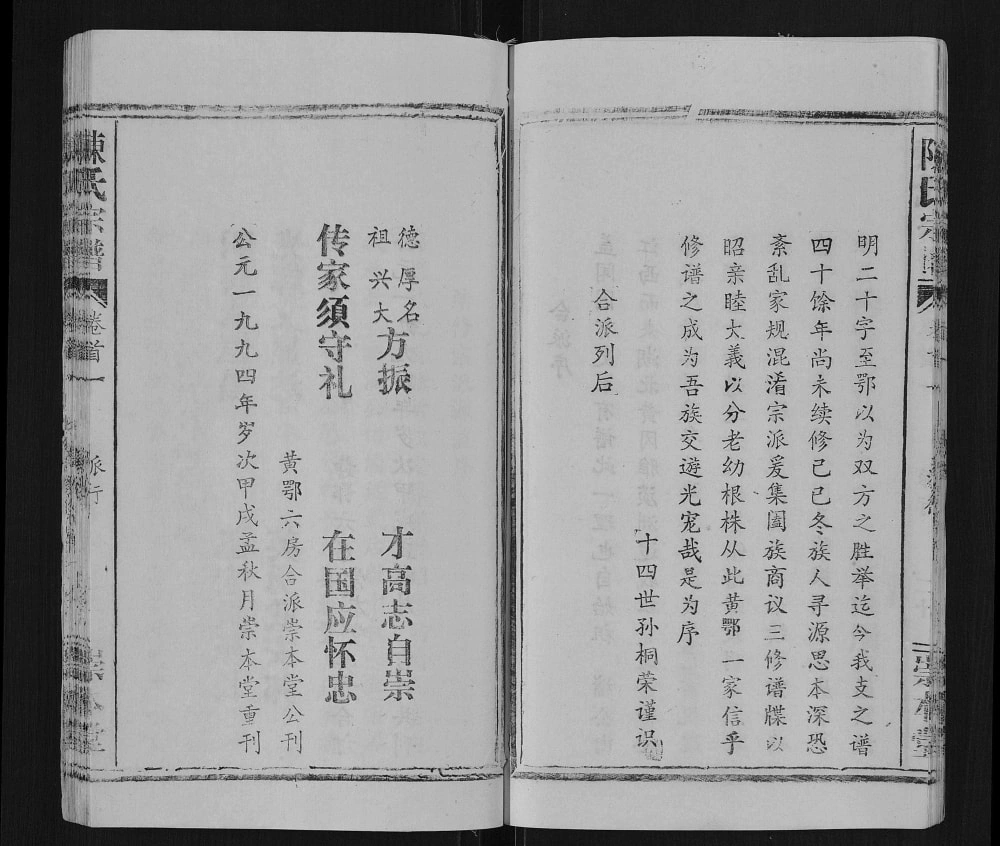 明二十字至鄂以为双方之胜举迄今我支之谱
四十馀年尚未续修己巳冬族人寻源思本深恐
紊乱家规混淆宗派爰集阖族商议三修谱牒以
昭亲睦大義以分老幼根株从此黄鄂一家信乎
修谱之成为吾族交遊光宠哉是为序
十四世孙桐荣谨识
合派列后
德厚名
祖兴大
方振
才高志自崇
传家须守礼
在国应怀忠
黄鄂六房合派崇本堂公刊
公元一九九四年岁次甲戌孟秋月崇本堂重刊
陳氏宗譜
卷首一
派行